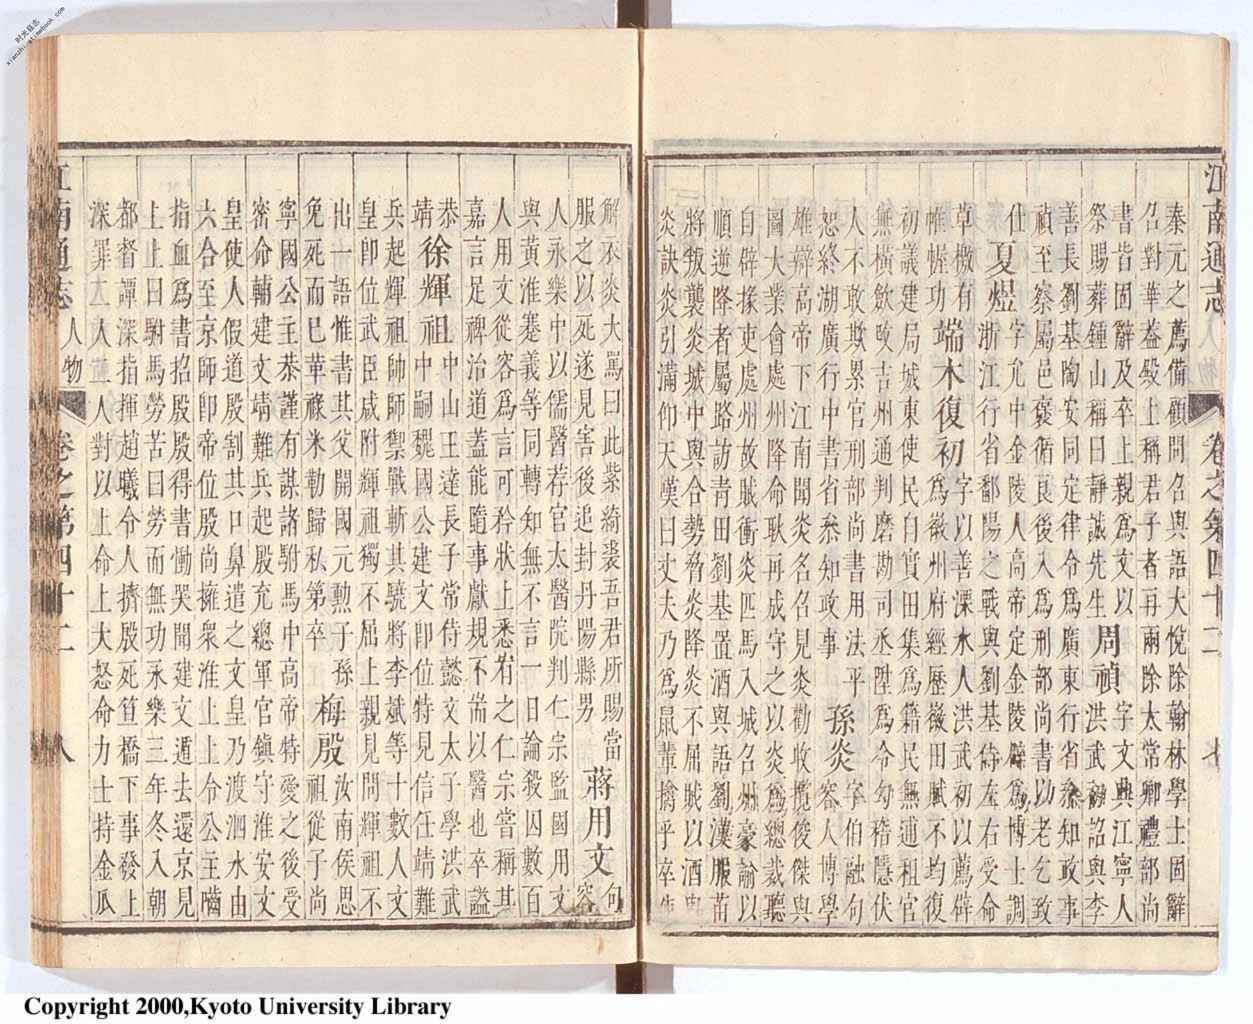 江南通志 人物 卷之第四十二 七
秦元之薦備顧問名與語大悅除翰林學士固辭
召對華葢殿上稱君子者再兩除太常卿禮部尚
書皆固辭及卒上親爲文以
祭賜葬鍾山稱曰靜誠先生 周禎 字文典江寧人洪武初詔與李
善長劉基陶安同定律令爲廣東行省叅知政事
禎至察屬邑褒循良後入爲刑部尚書以老乞致
仕 夏煜 字允中金陵人高帝定金陵辟爲博士調
浙江行省鄱陽之戰與劉基侍左右受命
草檄有
帷幄功 端木復初 字以善溧水人洪武初以薦辟
爲徽州府經歷徽田賦不均復
初議建局城東使民自實田集爲籍民無逋租官
無橫斂攺吉州通判磨勘司丞陞爲令勾稽隱伏
人不敢欺累官刑部尚書用法平
恕終湖廣行中書省叅知政事 孫炎 字伯融句容人博學
雄辯高帝下江南聞炎名名見炎勸收攬俊傑與
圖大業會處州降命耿再成守之以炎爲總裁聽
自辟掾吏處州故賊衝炎匹馬入城召州豪諭以
順逆降者屬路訪青田劉基置酒與語劉遂服苗
將叛襲炎城中與合勢脅炎降炎不屈賊以酒與
炎訣炎引滿仰天嘆曰丈夫乃爲鼠輩擒乎卒
解衣炎大罵曰此紫綺裘吾君所賜當
服之以死遂見害後追封丹陽縣男 蔣用文 句容
人永樂中以儒醫荐官太醫院判仁宗監國用文
與黃淮蹇義等同轉知無不言一日論殺囚數百
人用文從容爲言可矜狀上悉宥之仁宗嘗稱其
嘉言足裨治道蓋能隨事獻規不耑以醫也卒謚
恭
靖 徐輝祖 中山王達長子常侍懿文太子學洪武
中嗣魏國公建文卽位特見信任靖難
兵起輝祖帥師禦戰斬其驍將李斌等十數人文
皇卽位武臣咸附輝祖獨不屈上親見問輝祖不
出一語惟書其父開國元勲子孫
免死而已革祿米勒歸私第卒 梅殷 汝南侯思祖從子尚
寧國公主恭謹有謀諸駙馬中高帝特愛之後受
密命輔建文靖難兵起殷充總軍官鎮守淮安文
皇使人假道殷割其口鼻遣之文皇乃渡泗水由
六合至京師卽帝位殷尚擁衆淮上上令公主嚙
指血爲書招殷殷得書慟哭聞建文遁去還京見
上上曰駙馬勞苦曰勞而無功永樂三年冬入朝
都督譚深指揮趙曦令人擠殷死笪橋下事發上
深罪二人二人對以上命上大怒命力士持金瓜
江南通志 人物 卷之第四十二 八
Copyright 2000,Kyoto University Library
时光县志
xianzhi.stimebook.com